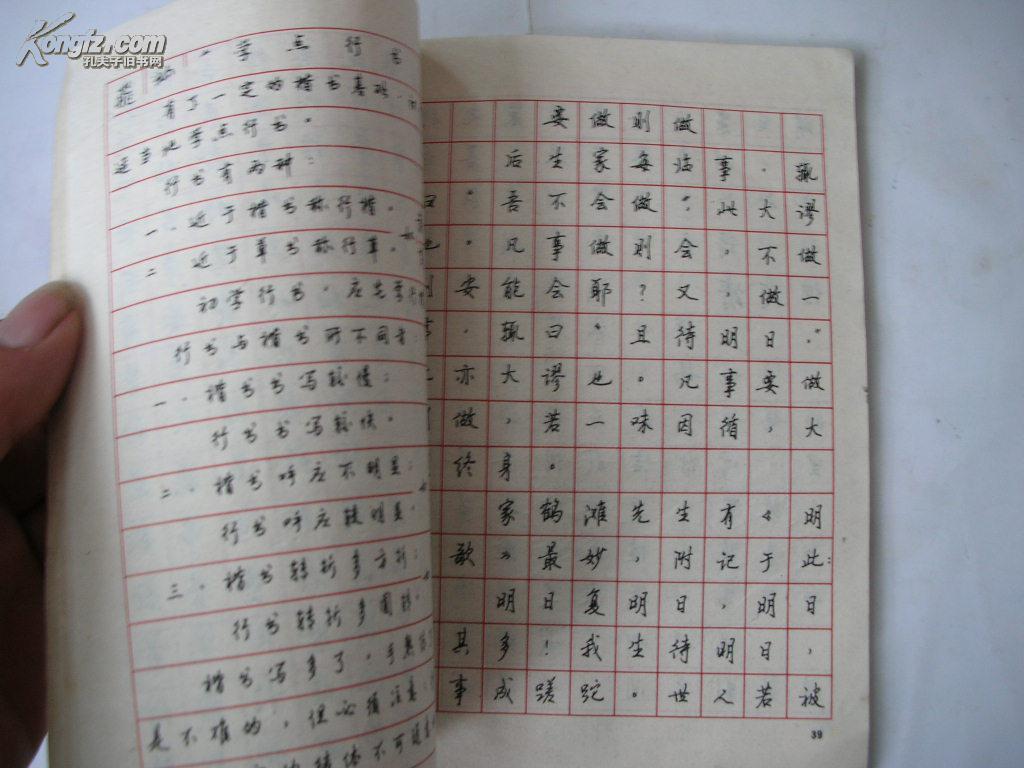 Kongfz.com
孔夫子旧书网
学点行书
有了一定的楷书基础
适当地学点行书。
行书有两种：
一、近于楷书称行楷。
二、近于草书称行草。
初学行书，应先学行
行书与楷书所不同者
一、楷书书写较慢；
行书书写较快。
二、楷书呼应不明显；
行书呼应较明显。
三、楷书转折多方折；
行书转折多圆转。
楷书写多了，手熟
是不难的，但必须注意
转体不可
要做则做
后生家每临事，辄
曰“吾不会做”。此大谬
也。凡事做则会，不做
安能会耶？又，做一
事，辄曰“且待明日”。
亦大谬也。凡事要做
做，若一味因循，大
终身。
家鹤滩先生有《明
歌》最妙，附记于此：
明日复明日，明日
其多！我生待明日，
事成蹉跎。世人若被
39